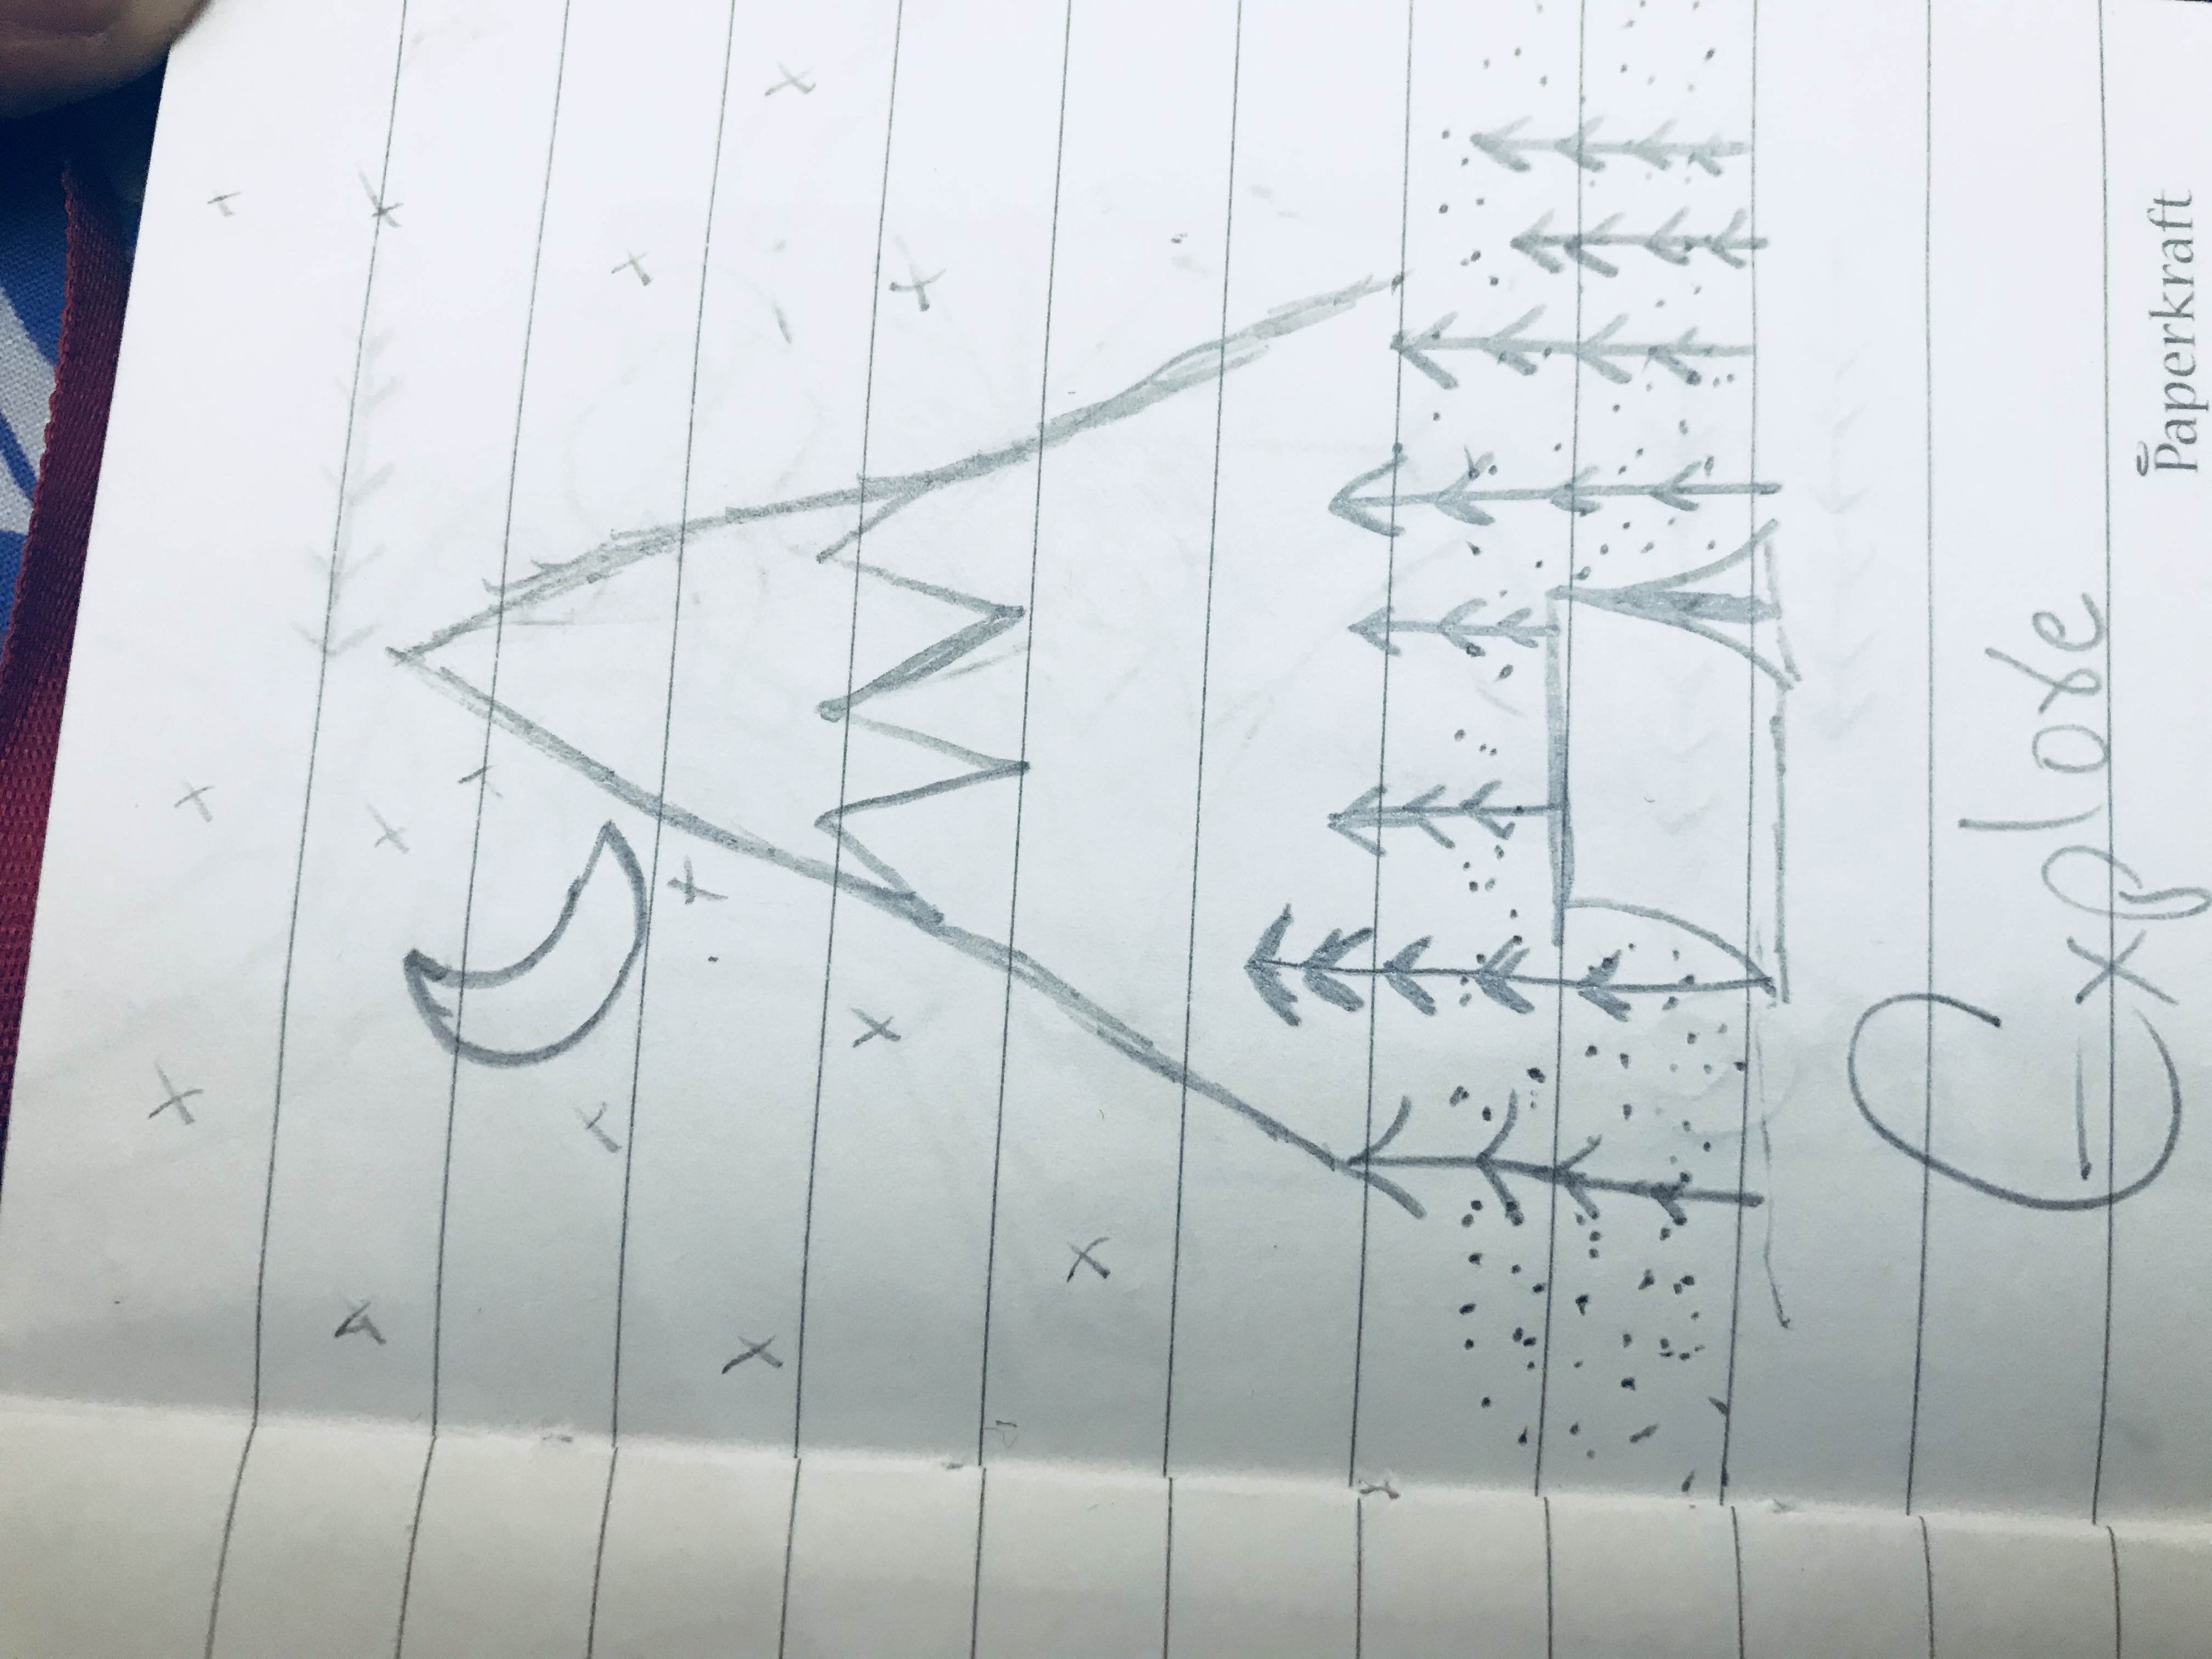 Explore
Paperkraft